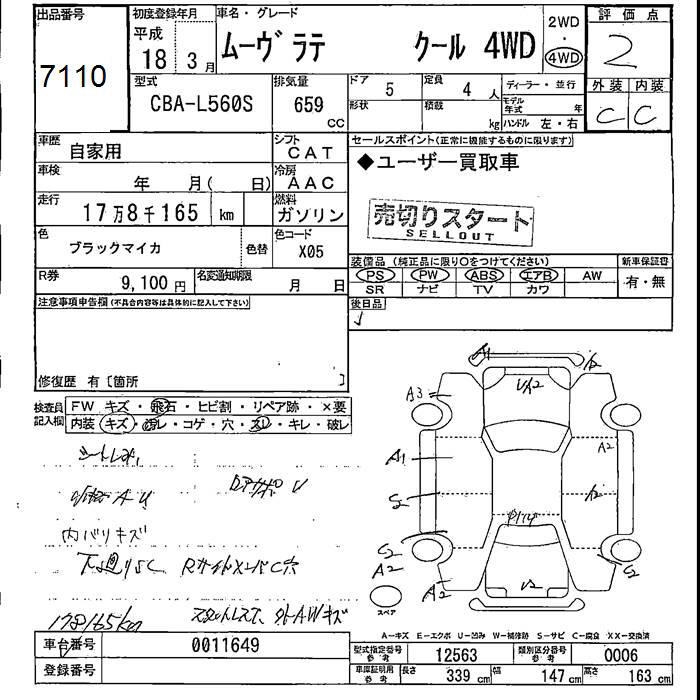 出品番号
7110
初度登録年月
平成
18年 3月
車名・グレード
ムーヴ ラテ クール 4WD
2WD
・
4WD
評価点
2
型式
CBA-L560S
排気量
659
CC
ドア 5
定員 4 人
形状
積載 kg
ディーラー・並行
モデル年式 年
ハンドル 左・右
外装 内装
C C
車歴
自家用
シフト
CAT
車検
年 月( 日)
冷房
AAC
走行
17万8千165 km
燃料
ガソリン
色
ブラックマイカ
色替
色コード
X05
R券
9,100 円
名変通知期限
月 日
注意事項申告欄(不具合内容等は具体的に記入して下さい)
修復歴 有〔箇所 〕
セールスポイント(正常に機能するものに限ります)
◆ユーザー買取車
売切りスタート
SELLOUT
装備品(純正品に限り○をつけてください)
新車保証書
PS PW ABS エアB AW
SR ナビ TV カワ
有・無
後日品
検査員
記入欄
FW キズ・飛石・ヒビ割・リペア跡・×要
内装 キズ・汚レ・コゲ・穴・スレ・キレ・破レ
内バリキズ
下廻りSC
178165km
スタットレス下、外AWキズ
A1
A2
UA2
A3
A1
A2
A2
S2
C2
A2
A2
S2
スペア
A-キズ E-エクボ U-凹み W-補修跡 S-サビ C-腐食 XX-交換済
車台番号
0011649
登録番号
型式指定番号
参考
12563
類別区分番号
参考
0006
車庫証明用
参考
長さ 339 cm 幅 147 cm 高さ 163 cm